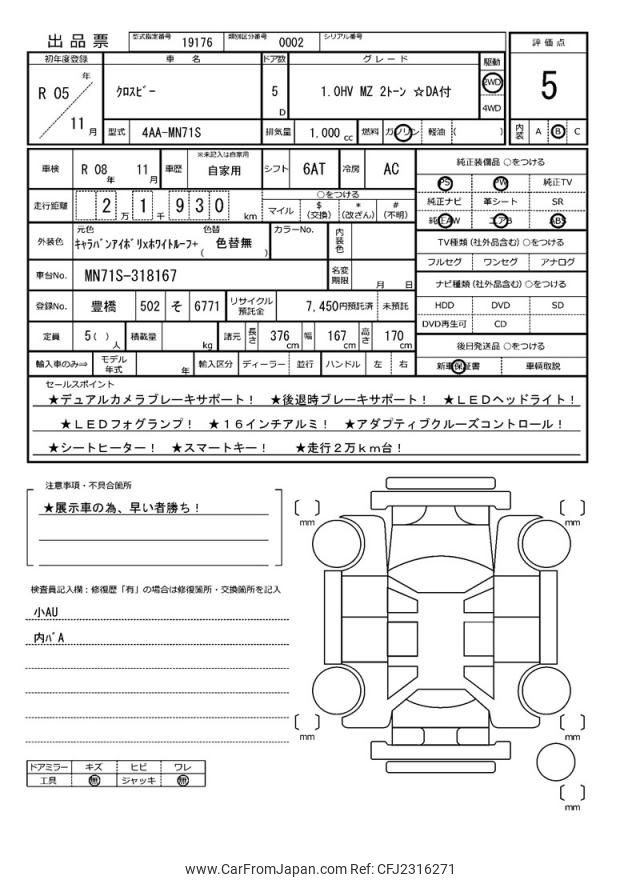 出品票 型式指定番号 19176 類別区分番号 0002 シリアル番号
評価点
5
初年度登録 車名 ドア数 グレード 駆動
R 05 年 11 月
クロスビー 5 D 1.0HV MZ 2トーン ☆DA付 2WD 4WD
型式 4AA-MN71S 排気量 1.000 cc 燃料 ガソリン 軽油 ( )
内装 A B C
車検 R 08 年 11 月 車歴 ※未記入は自家用 自家用 シフト 6AT 冷房 AC
走行距離 2 万 1 千 9 3 0 km
○をつける
マイル $ (交換) * (改ざん) # (不明)
外装色 元色 色替
キャラバンアイボリxホワイトルーフ+ ( 色替無 )
カラーNo. 内装色
車台No. MN71S-318167 名変期限 月 日
登録No. 豊橋 502 そ 6771 リサイクル預託金 7,450円預託済 未預託
定員 5 ( ) 人 積載量 kg 諸元 長さ 376 cm 幅 167 cm 高さ 170 cm
輸入車のみ⇨ モデル年式 年 輸入区分 ディーラー 並行 ハンドル 左 右
純正装備品 ○をつける
PS PW 純正TV
純正ナビ 革シート SR
純正AW エアB ABS
TV種類 (社外品含む) ○をつける
フルセグ ワンセグ アナログ
ナビ種類 (社外品含む) ○をつける
HDD DVD SD
DVD再生可 CD
後日発送品 ○をつける
新車保証書 車輌取説
セールスポイント
★デュアルカメラブレーキサポート! ★後退時ブレーキサポート! ★LEDヘッドライト!
★LEDフォグランプ! ★16インチアルミ! ★アダプティブクルーズコントロール!
★シートヒーター! ★スマートキー! ★走行2万km台!
注意事項・不具合箇所
★展示車の為、早い者勝ち!
検査員記入欄:修復歴「有」の場合は修復箇所・交換箇所を記入
小AU
内バA
ドアミラー キズ ヒビ ワレ
工具 無 ジャッキ 無
[ ] mm
[ ] mm
[ ] mm
[ ] mm
[ ] mm
www.CarFromJapan.com Ref: CFJ2316271